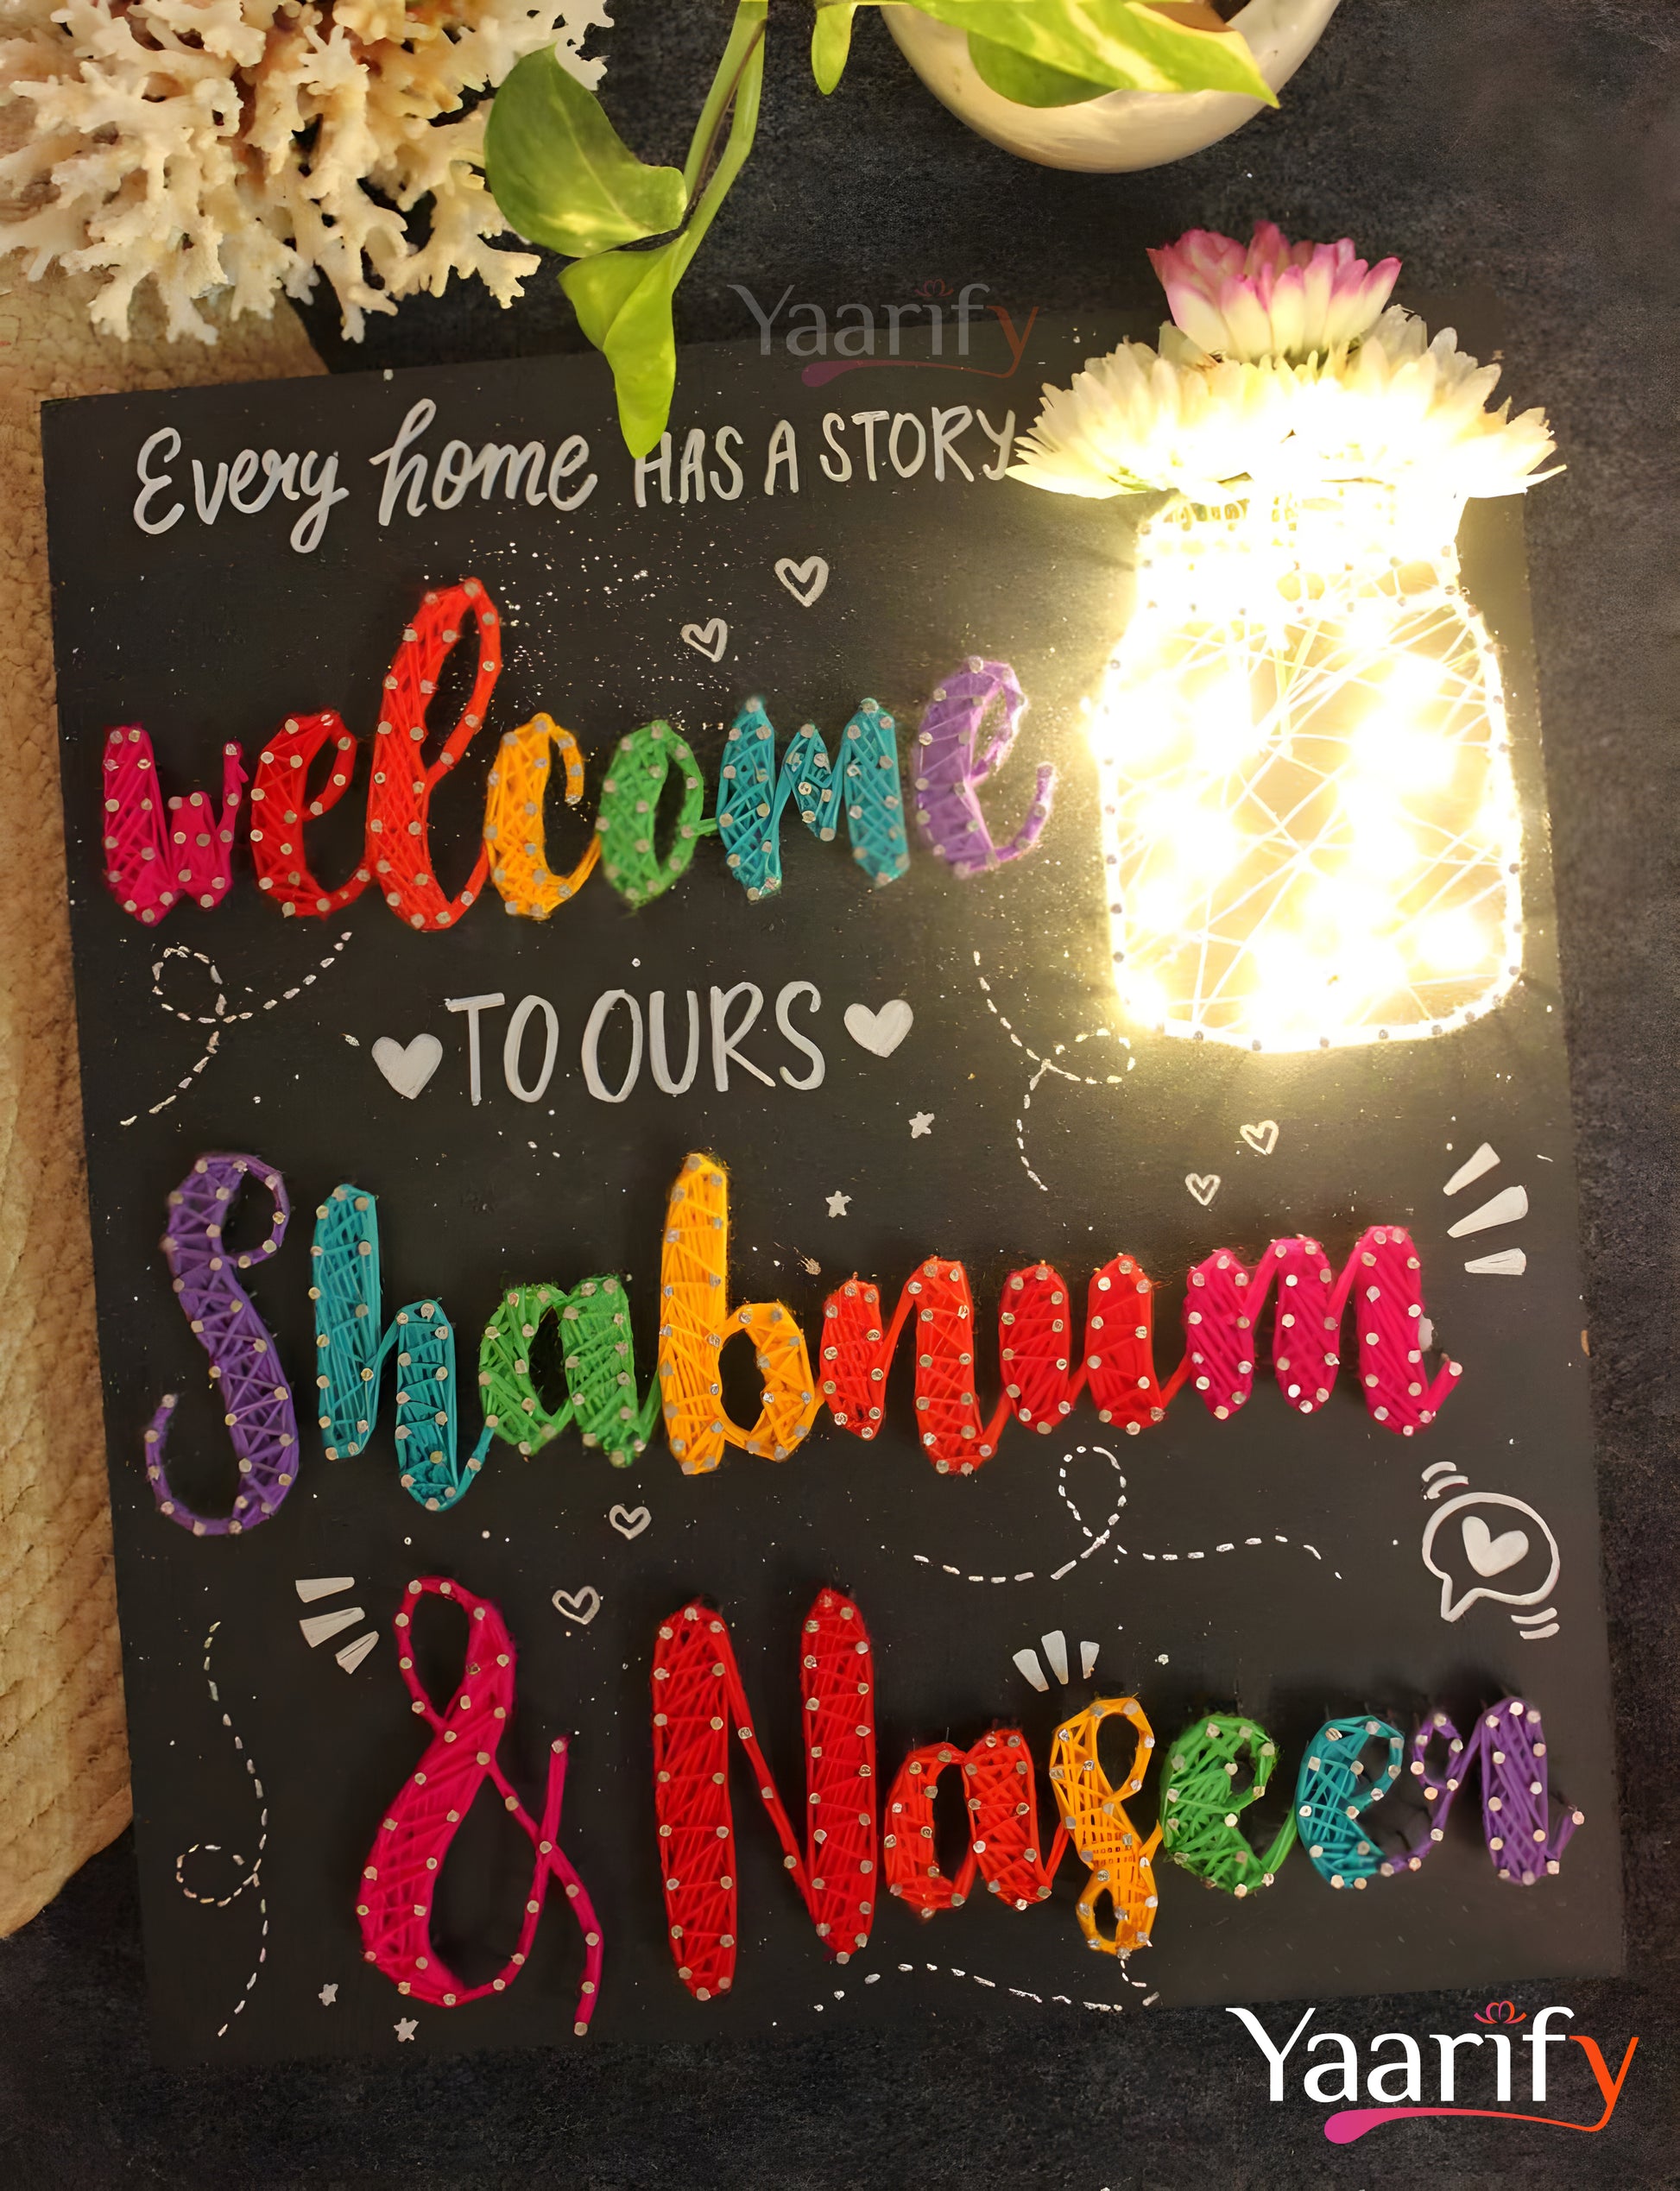 Yaarify
Every home HAS A STORY
welcome
TO OURS
Shabnum
& Nageen
Yaarify